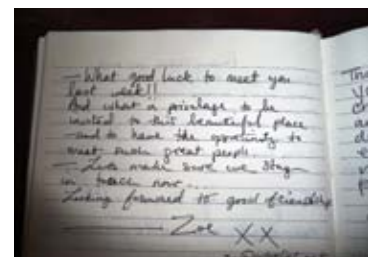 – What good luck to meet you
last week!!
And what a privilage to be
invited to this beautiful place
– and to have the opportunity to
meet such great people.
– Lets make sure we stay
in touch now...
Looking forward to good friendship
Zoe XX